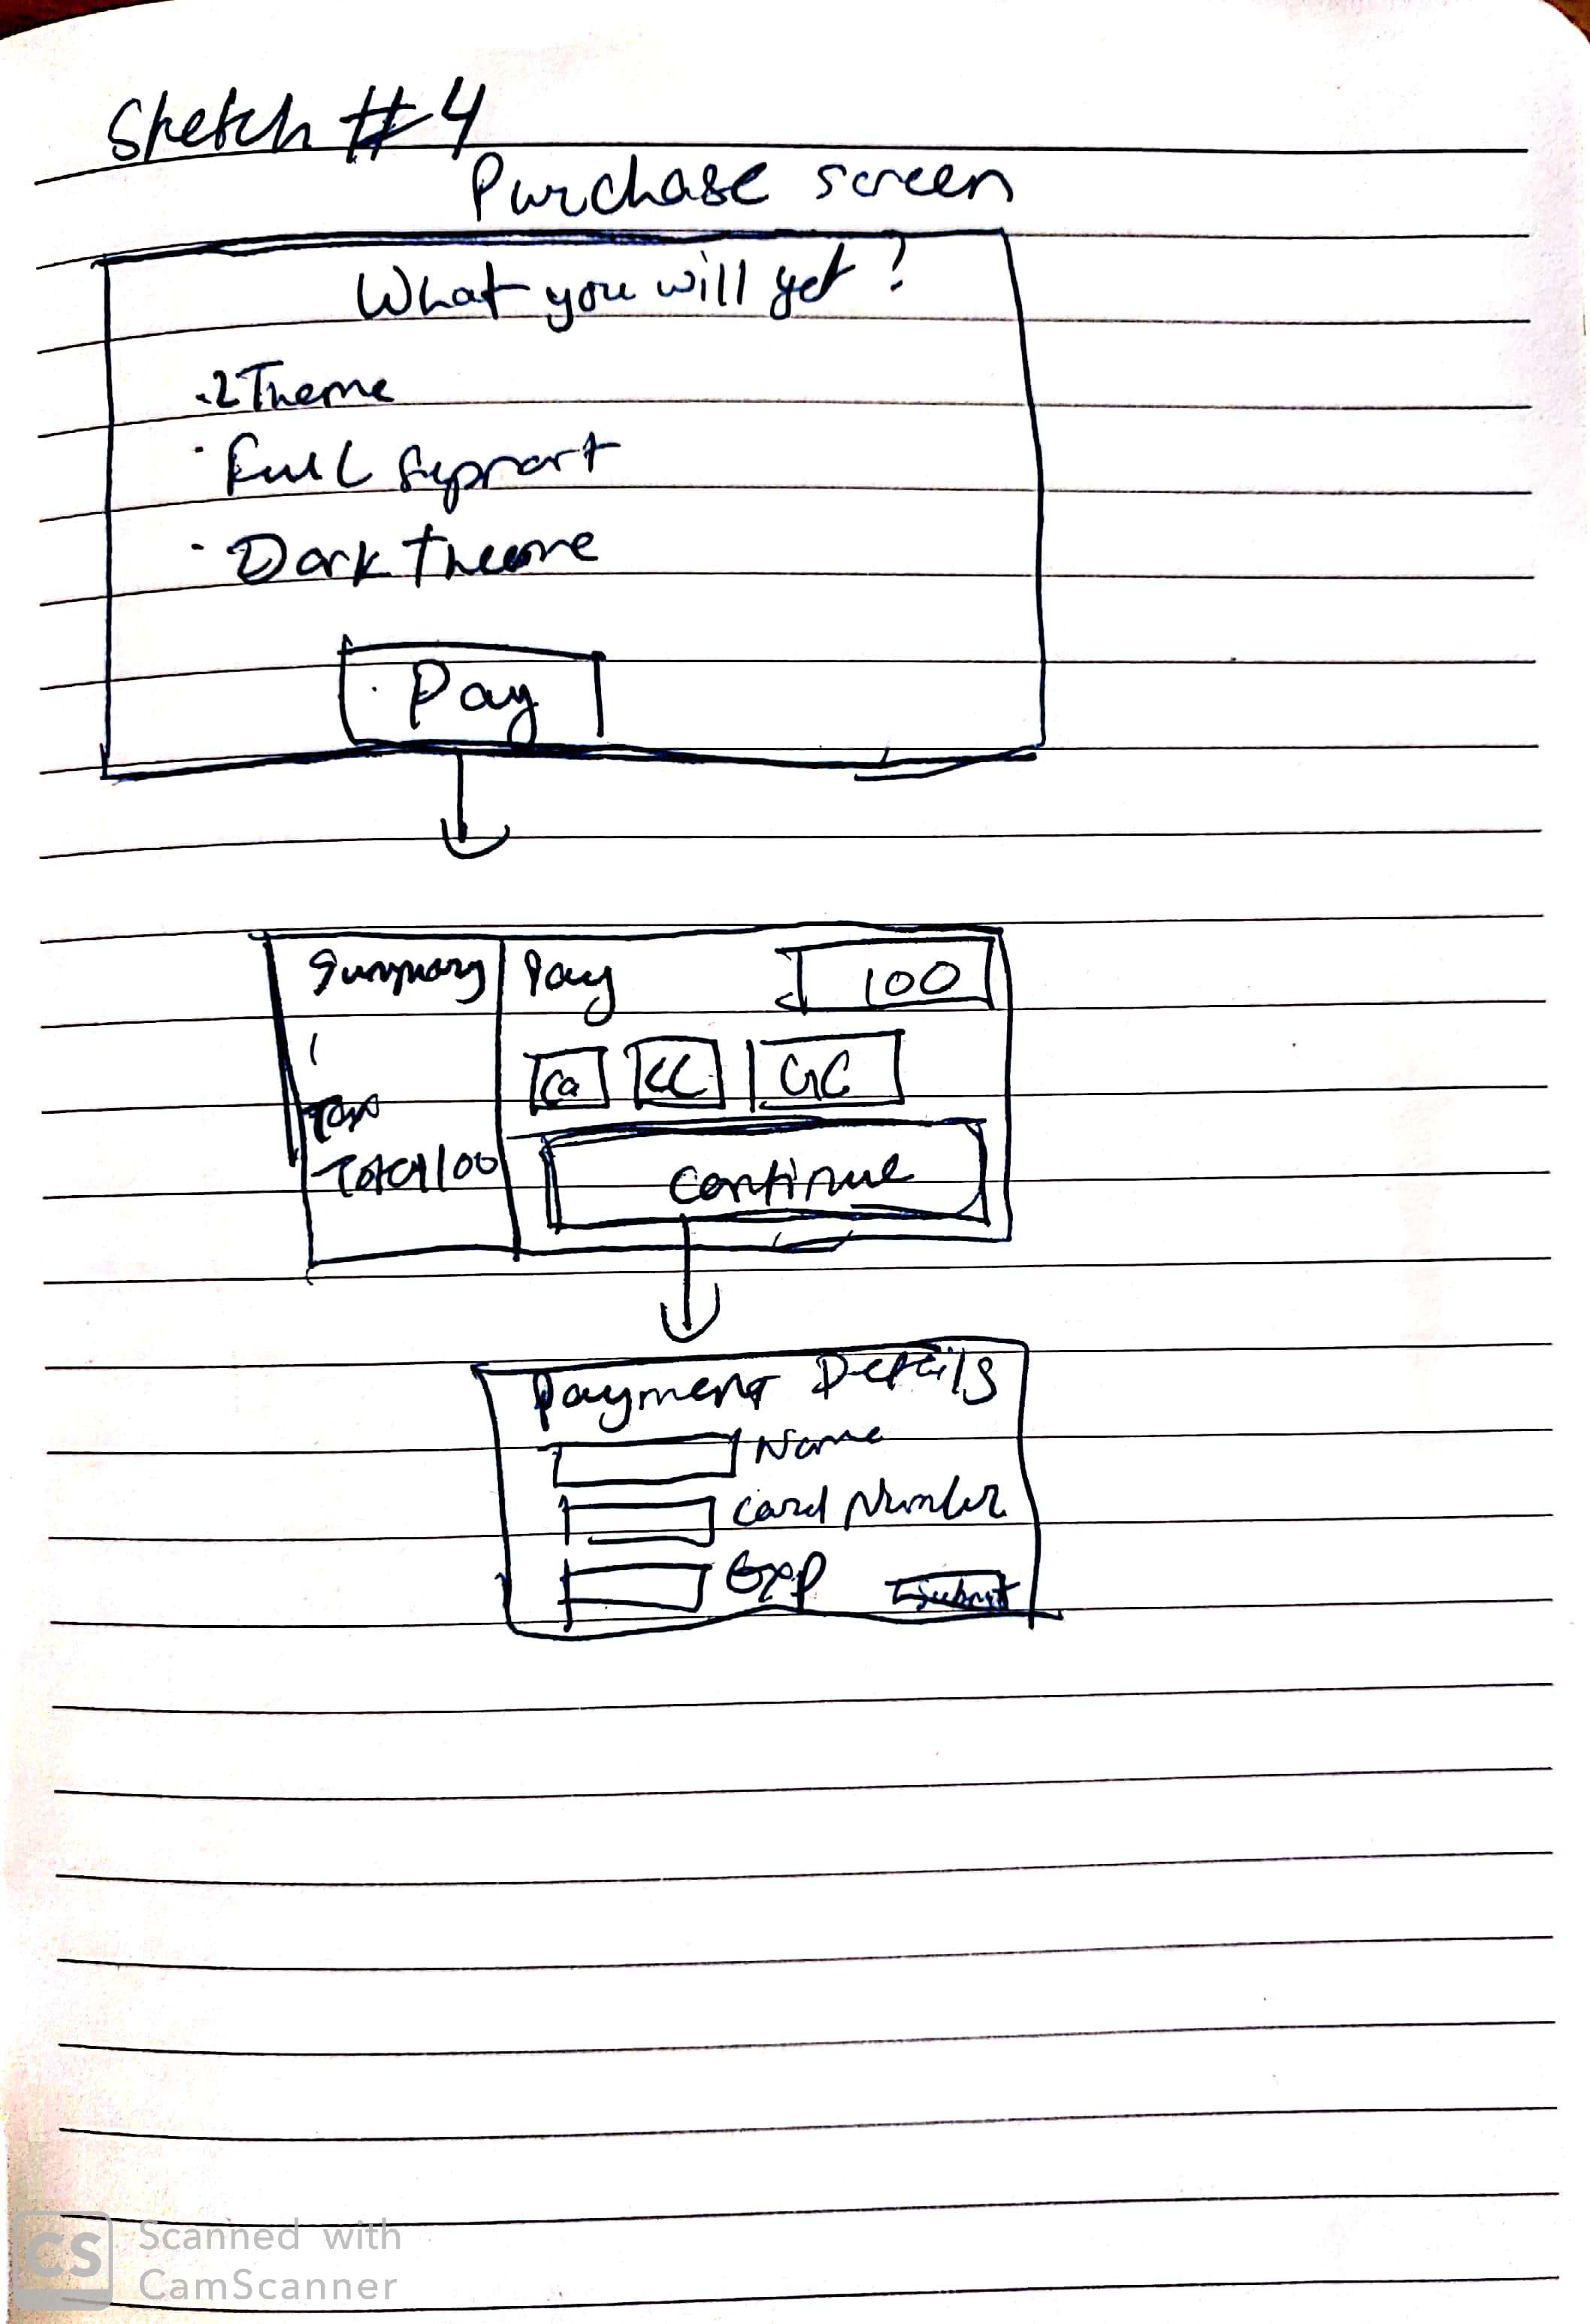 Sketch #4
Purchase screen
What you will get?
. 2 Theme
. Full Support
- Dark theme
Pay
Summary
Pay
100
Ca
CC
GC
Tax
Total 100
Continue
Payment Details
Name
Card Number
Exp
Submit
CS
Scanned with
CamScanner